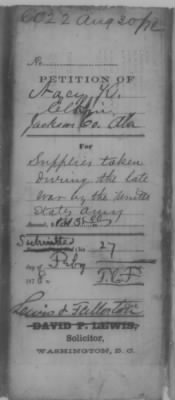 6022 Aug 20/72
No.
PETITION OF
Stacy, H.
Jackson Co. Ala
For
Supplies taken
during the late
war by the United
States army
Submitted
No 27
day of Feby
187
T. C. F.
Lewis & Fullerton
DAVID P. LEWIS,
Solicitor,
WASHINGTON, D. C.